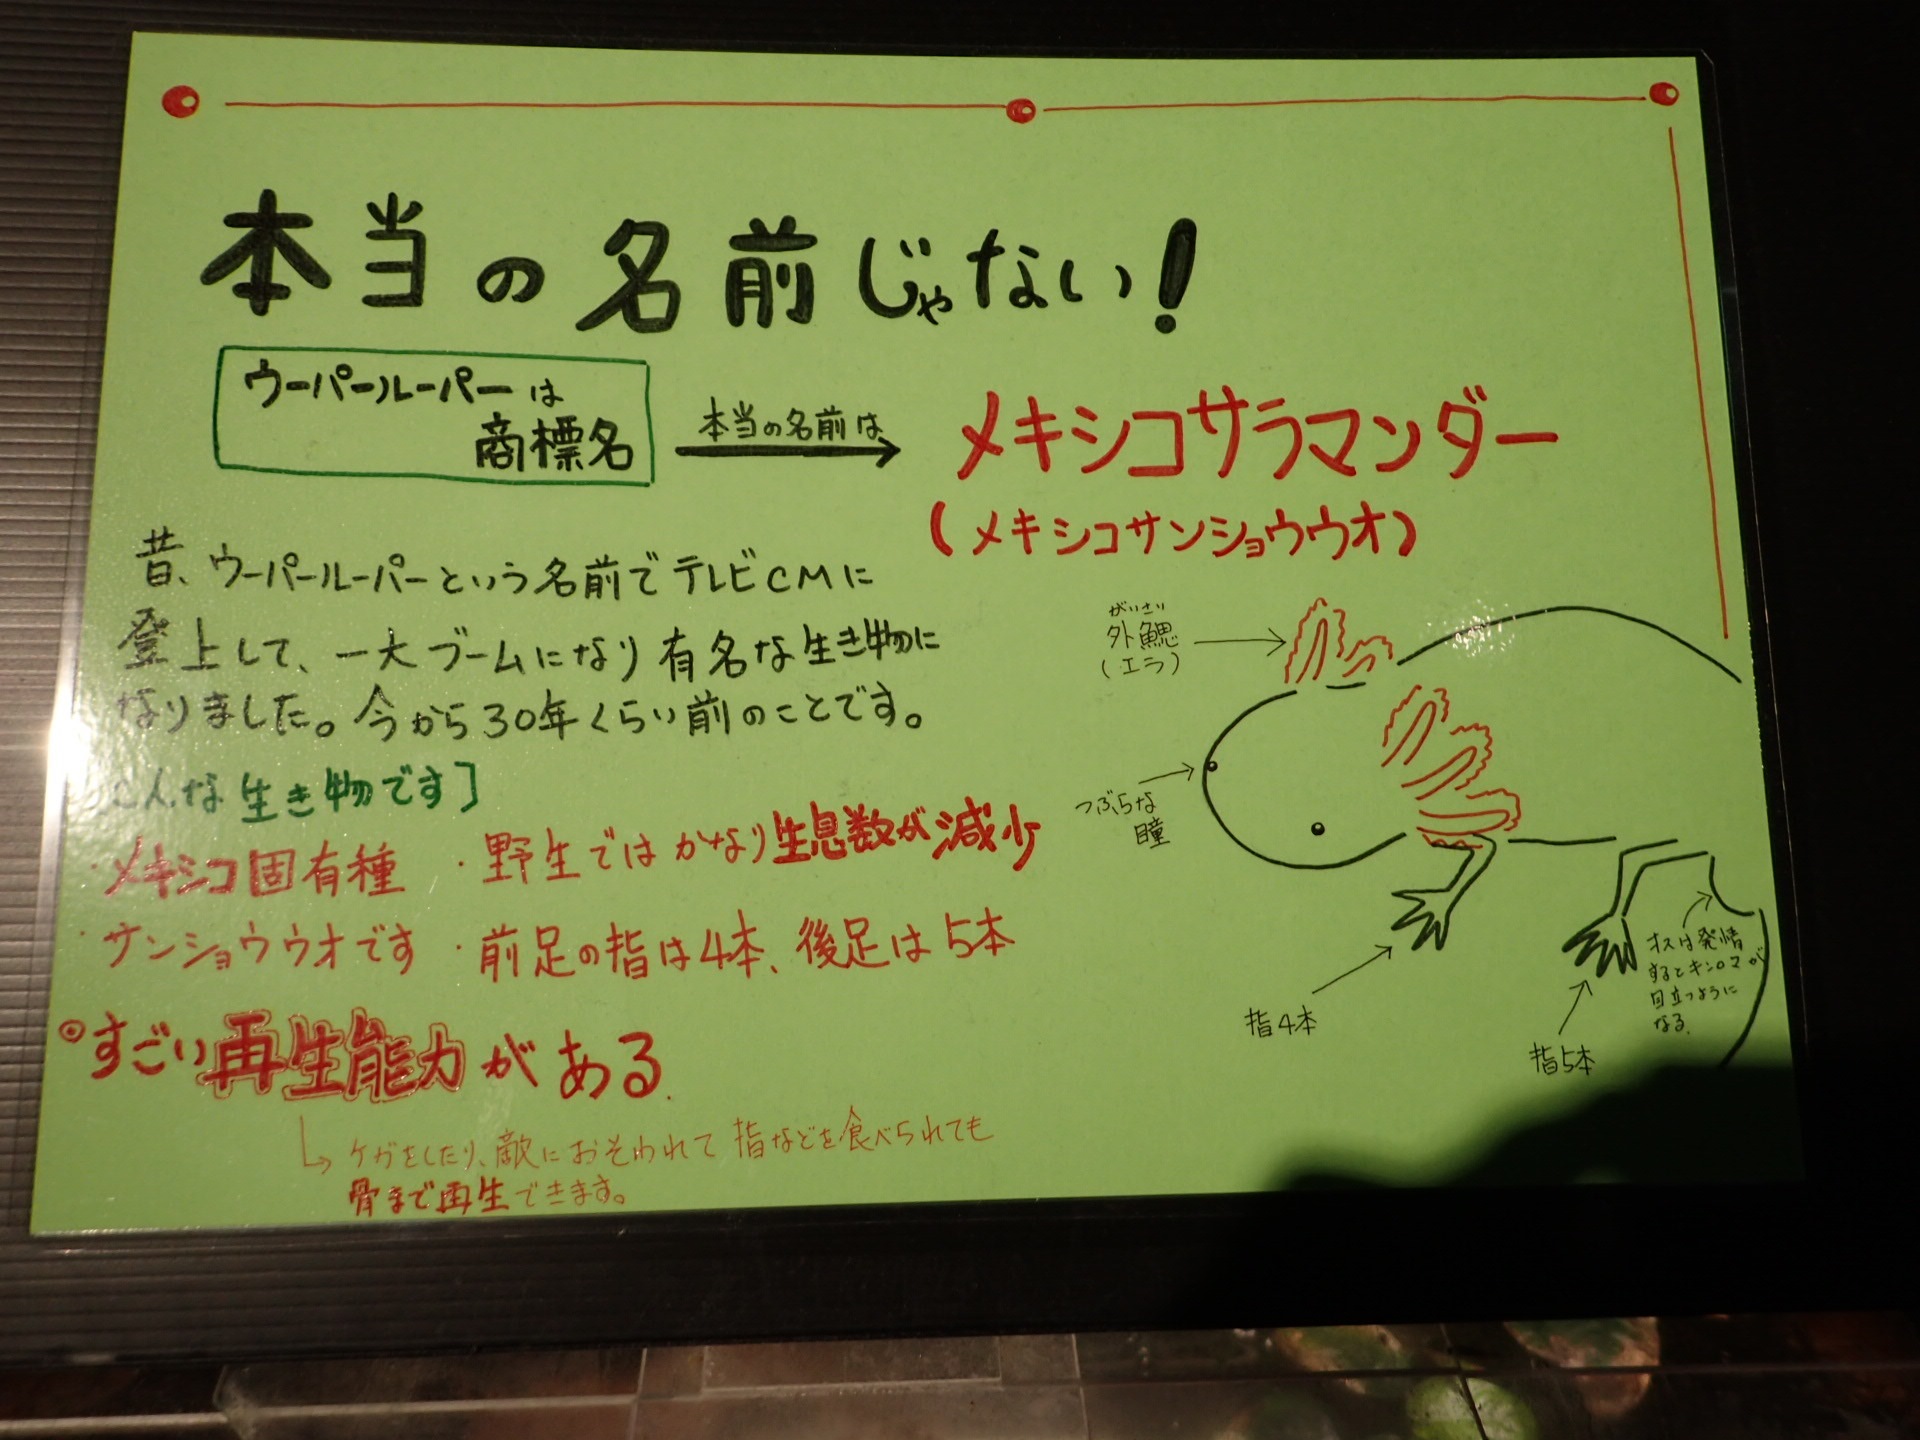 本当の名前じゃない!
ウーパールーパーは
商標名
本当の名前は
メキシコサラマンダー
(メキシコサンショウウオ)
昔、ウーパールーパーという名前でテレビCMに
登上して、一大ブームになり有名な生き物に
なりました。今から30年くらい前のことです。
こんな生き物です]
・メキシコ固有種 ・野生ではかなり生息数が減少
・サンショウウオです ・前足の指は4本、後足は5本
◎すごい再生能力がある.
ケガをしたり、敵におそわれて指などを食べられても
骨まで再生できます。
がいさい
外鰓
(エラ)
つぶらな
瞳
指4本
指5本
オスは発情
するとキンロマが
目立つように
なる.